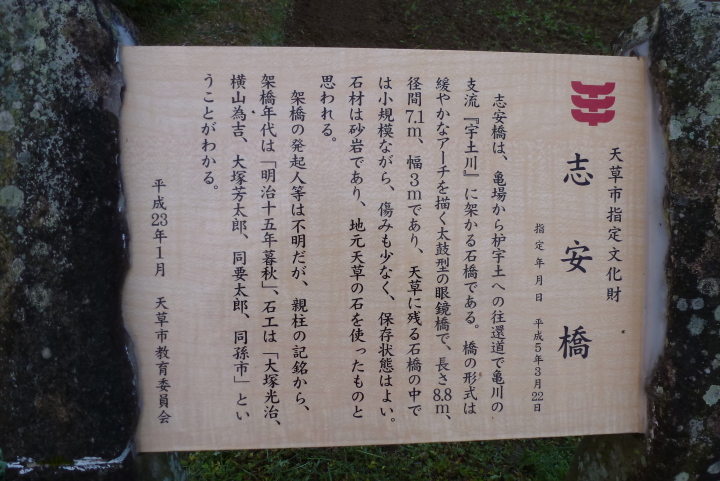 天草市指定文化財
志安橋
指定年月日 平成5年3月22日
志安橋は、亀場から枦宇土への往還道で亀川の
支流『宇土川』に架かる石橋である。橋の形式は
緩やかなアーチを描く太鼓型の眼鏡橋で、長さ8.8m、
径間7.1m、幅3mであり、天草に残る石橋の中で
は小規模ながら、傷みも少なく、保存状態はよい。
石材は砂岩であり、地元天草の石を使ったものと
思われる。
架橋の発起人等は不明だが、親柱の記銘から、
架橋年代は「明治十五年暮秋」、石工は「大塚光治、
横山為吉、大塚芳太郎、同要太郎、同孫市」とい
うことがわかる。
平成23年1月 天草市教育委員会